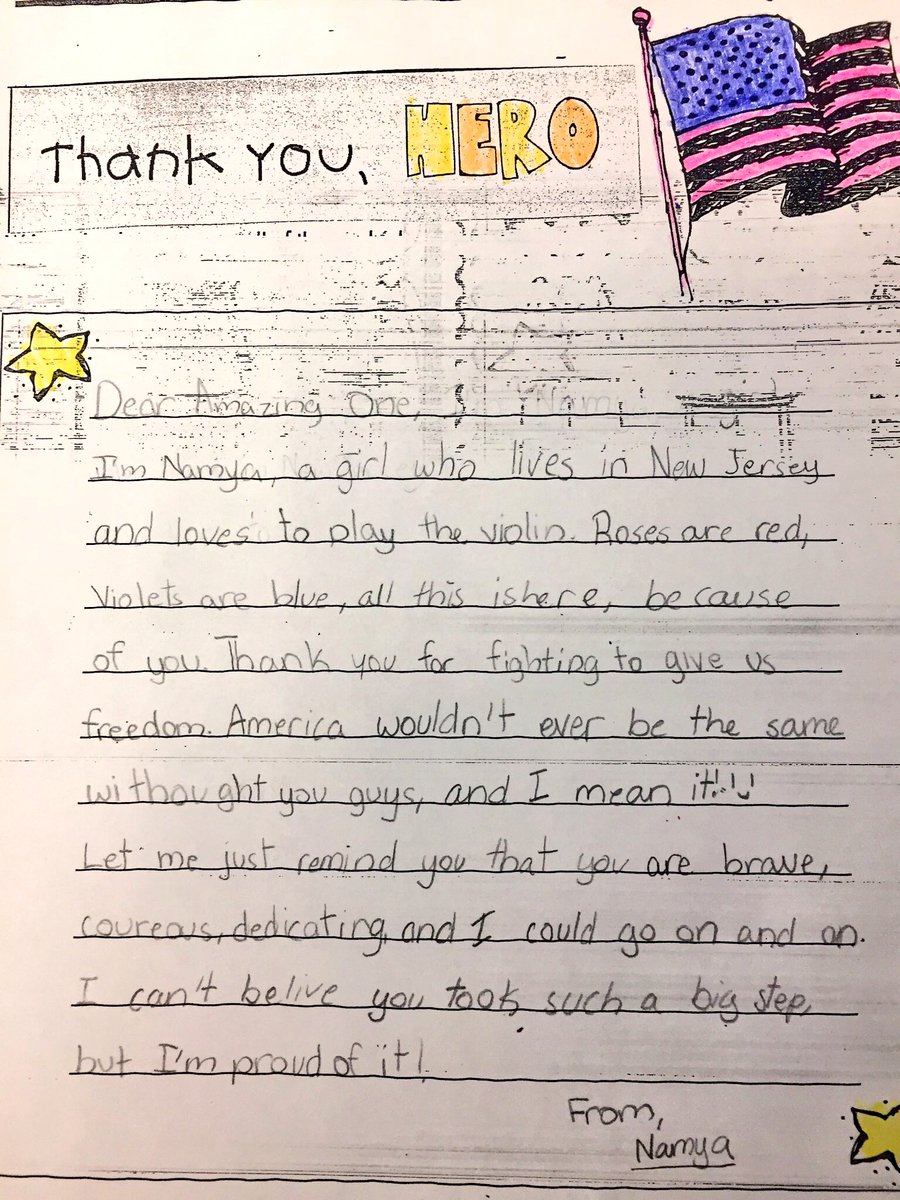 Thank You, HERO
Dear Amazing One,
I'm Namya, a girl who lives in New Jersey
and loves to play the violin. Roses are red,
Violets are blue, all this is here, because
of you. Thank you for fighting to give us
freedom. America wouldn't ever be the same
withought you guys, and I mean it!!!
Let me just remind you that you are brave,
coureous, dedicating, and I could go on and on.
I can't belive you took such a big step,
but I'm proud of it!
From,
Namya